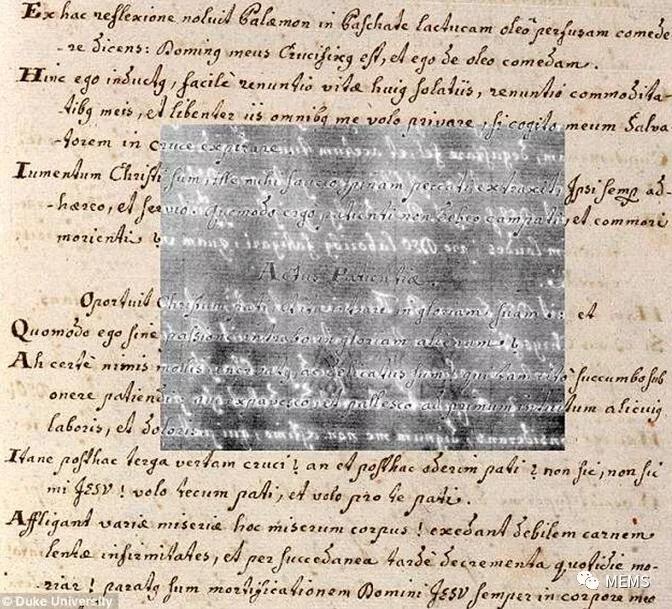 Ex hac reflexione noluit Palæmon in Paschate lactucam oleo perfusam comede
-re dicens: Dominꝰ meus Crucifixꝰ est, et ego de oleo comedam.
Hinc ego inductꝰ, facilè renuntio vitæ huiꝰ solatiis, renuntio commodita-
tibꝰ meis, et libenter iis omnibꝰ me volo privare, si cogito meum Salva-
torem in cruce expirare.
Iumentum Christi sum, iste mihi saucio spinam peccati extraxit, Ipsi semp ad-
-hæreo, et servio. Quomodo ergo patienti non debeo compati, et commori
morienti
Actus Patientiæ.
Oportuit Christum pati, et ita intrare in gloriam suam et
Quomodo ego sine passione intrabo in gloriam
Ah certè nimis mollis delicatus sum, succumbo sub
onere patiendi, expavesco et pallesco ad primum intuitum alicuiꝰ
laboris, et doloris
Itane posthac terga vertam cruci? an et posthac oderim pati? non sic, non sic
mi JESU! volo tecum pati, et volo pro te pati.
Affligant variæ miseriæ hoc miserum corpus! exedant debilem carnem
lentæ infirmitates, et per succedanea tardè decrementa quotidie mo-
riar! paratꝰ sum mortificationem Domini JESU semper in corpore meo
© Duke University
MEMS